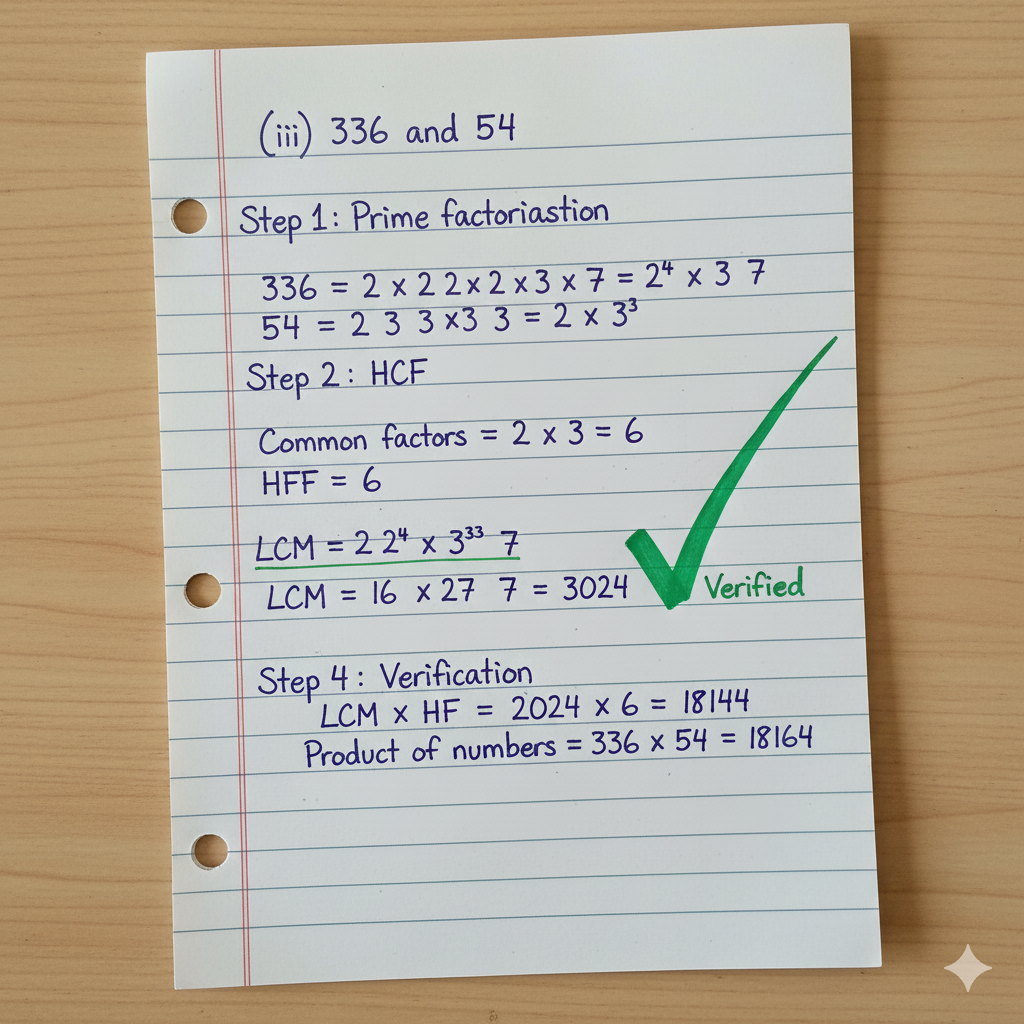 (iii) 336 and 54
Step 1: Prime factoriastion
336 = 2 × 2 2 × 2 × 3 × 7 = 2⁴ × 3 7
54 = 2 3 3 ×3 3 = 2 × 3³
Step 2: HCF
Common factors = 2 × 3 = 6
HFF = 6
LCM = 2 2⁴ × 3³³ 7
LCM = 16 × 27 7 = 3024
Verified
Step 4: Verification
LCM × HF = 2024 × 6 = 18144
Product of numbers = 336 × 54 = 18164